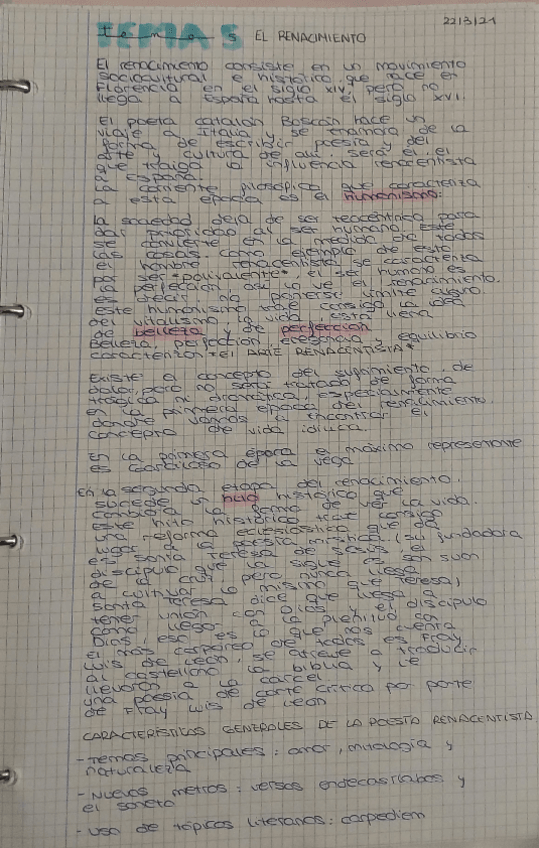 22/3/21
TEMA 5 EL RENACIMIENTO
El renacimiento consiste en un movimiento
sociocultural e histórico que nace en
Florencia en el siglo XIV, pero no
llega a España hasta el siglo XVI.
El poeta catalán Boscán hace un
viaje a Italia y se enamora de la
forma de escribir poesía y del
arte y cultura de ahí. Será él el
que traiga la influencia renacentista
a España.
La corriente filosófica que caracteriza
a esta época es el humanismo.
La sociedad deja de ser teocéntrica para
dar prioridad al ser humano. Este
se convierte en la medida de todas
las cosas. Como ejemplo de esto
el hombre renacentista se caracteriza
por ser "polivalente" el ser humano es
la perfección, así lo ve el renacimiento.
es decir no ponerse límite
este humanismo trae consigo la idea
del vitalismo, la vida esta llena
de belleza y de perfección
Belleza, perfección, y equilibrio
caracterizan "el ARTE RENACENTISTA"
Existe el concepto del sufrimiento, de
dolor, pero no será tratado de forma
trágica ni dramática, especialmente
en la primera época del renacimiento,
donde vamos a encontrar el
concepto de vida
En la primera época el máximo representante
es Garcilaso de la Vega
En la segunda etapa del renacimiento,
sucede un hito histórico que
cambiará la forma de ver la vida.
este hito histórico trae consigo
una reforma eclesiástica que da
lugar a la poesía mística (su fundadora
es Santa Teresa de Jesús, el
discípulo que la sigue es San Juan
de la Cruz, pero nunca llega
a cultivar lo mismo que Teresa,
Santa Teresa dice que llega a
tener unión con Dios y el discípulo
como llegó a la plenitud con
Dios, eso es lo que nos cuenta
El más corpóreo de todos es Fray
Luis de León, se atreve a traducir
al castellano la biblia y le
llevaron a la cárcel.
una poesía de corte crítico por parte
de Fray Luis de León
CARACTERÍSTICAS GENERALES DE LA POESÍA RENACENTISTA
- Temas principales: amor, mitología y
naturaleza
- Nuevos metros: versos endecasílabos y
el soneto
- uso de tópicos literarios: carpediem